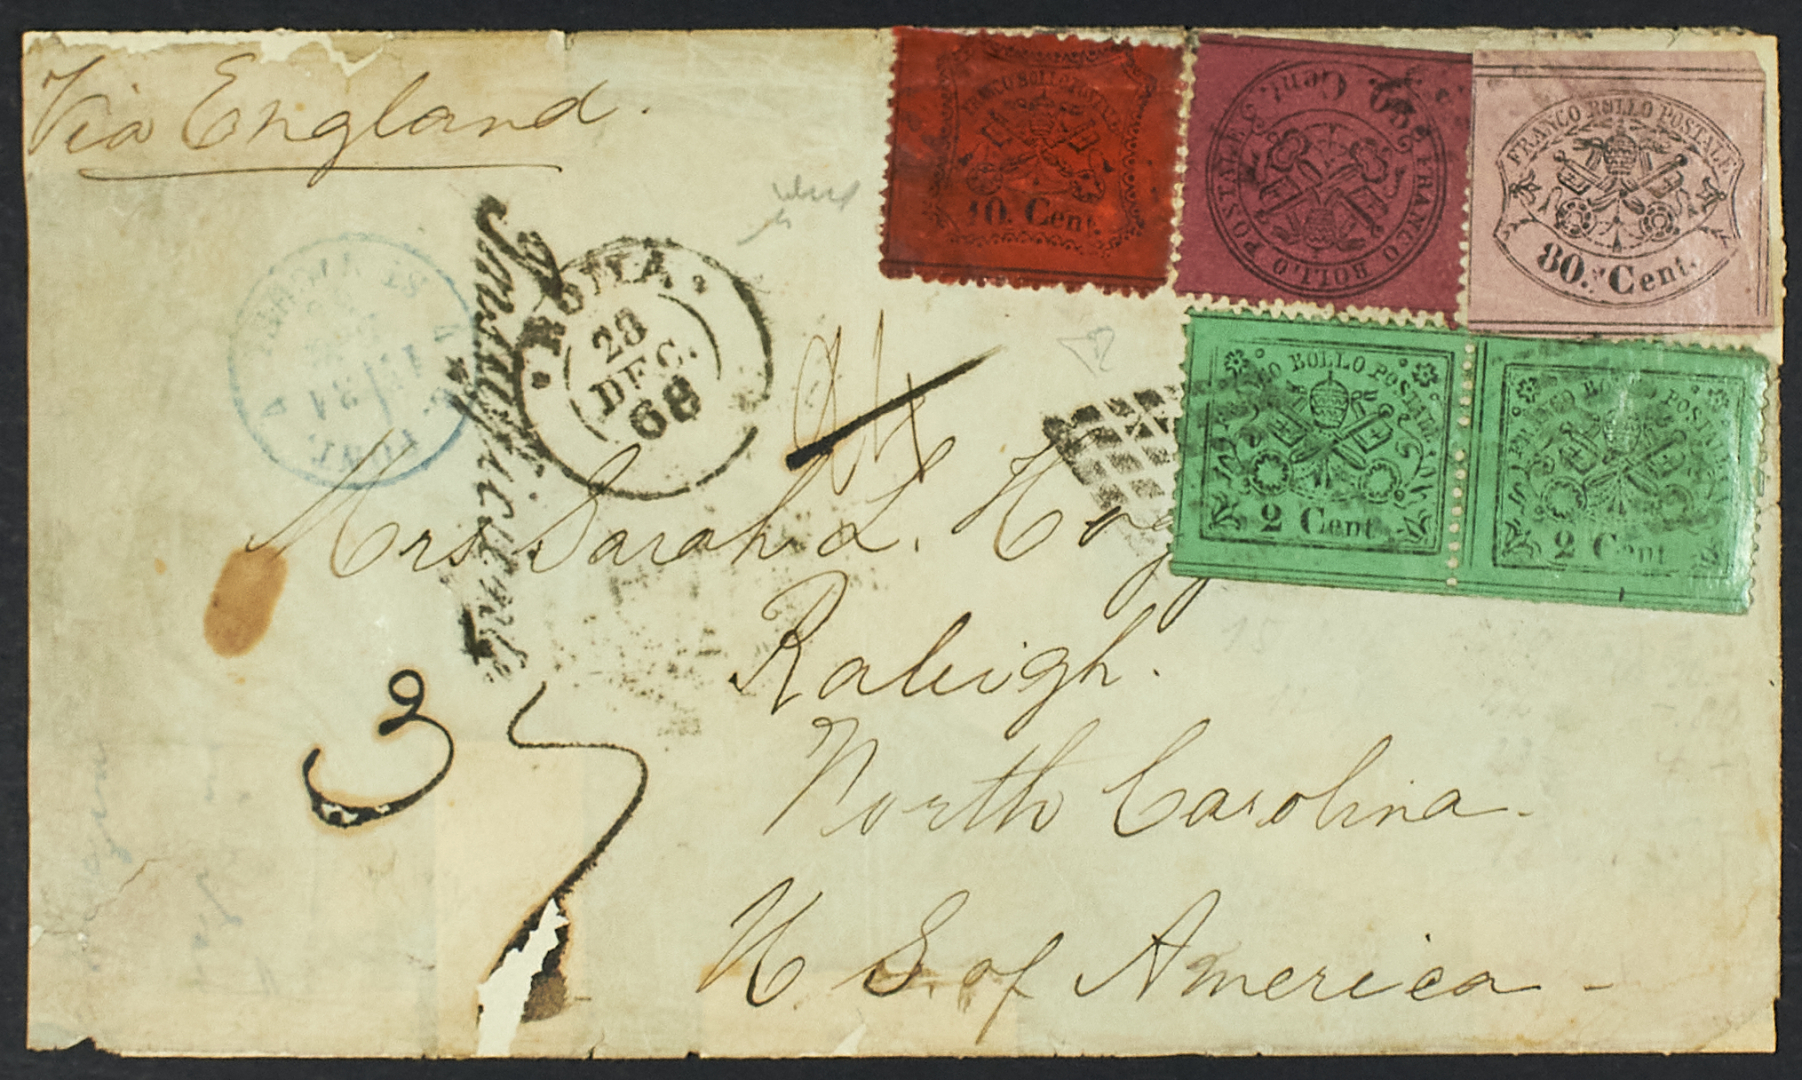 Via England.
FRANCO BOLLO POSTALE
10. Cent.
FRANCO BOLLO POSTALE
20. Cent.
FRANCO BOLLO POSTALE
80. Cent.
ROMA
28
DEC.
68
Insufficiente
FRANCO BOLLO POSTALE
2 Cent
FRANCO BOLLO POSTALE
2 Cent
Mrs Sarah L. Hogg
Raleigh.
North Carolina.
U. S. of America -